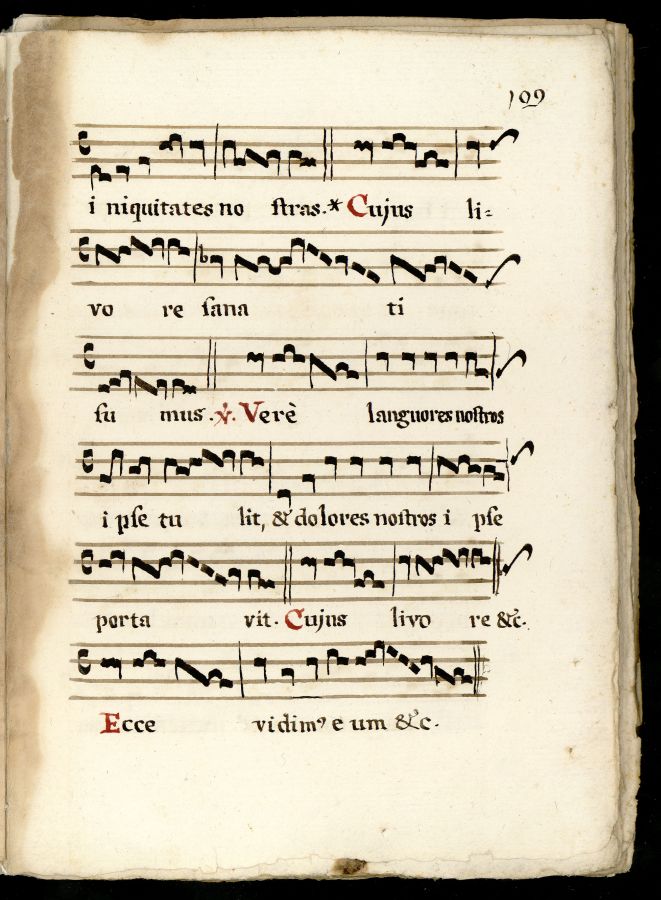 109
i niquitates no stras.* Cujus li=
vo re sana ti
su mus. ℣. Verè languores nostros
i pse tu lit, & dolores nostros i pse
porta vit. Cujus livo re &c.
Ecce vidimꝰ e um &c.